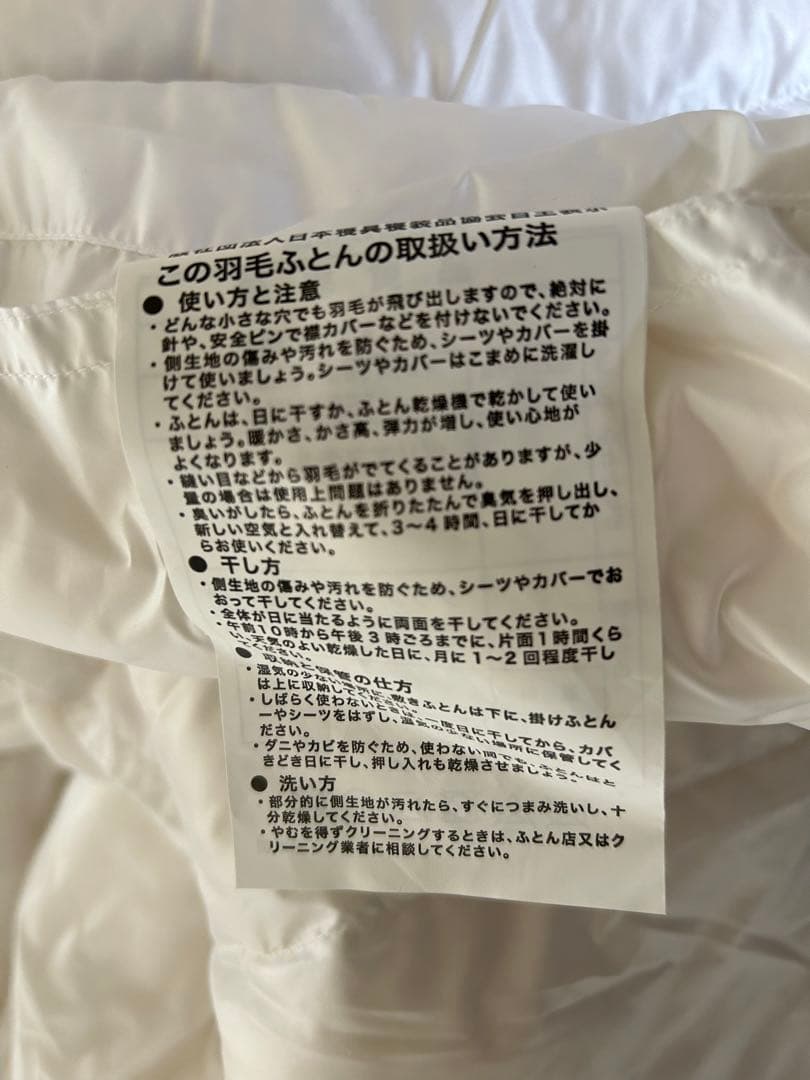 一般社団法人日本寝具寝装品協会自主表示
この羽毛ふとんの取扱い方法
● 使い方と注意
・どんな小さな穴でも羽毛が飛び出しますので、絶対に
針や、安全ピンで襟カバーなどを付けないでください。
・側生地の傷みや汚れを防ぐため、シーツやカバーを掛
けて使いましょう。シーツやカバーはこまめに洗濯し
てください。
・ふとんは、日に干すか、ふとん乾燥機で乾かして使い
ましょう。暖かさ、かさ高、弾力が増し、使い心地が
よくなります。
・縫い目などから羽毛がでてくることがありますが、少
量の場合は使用上問題はありません。
・臭いがしたら、ふとんを折りたたんで臭気を押し出し、
新しい空気と入れ替えて、3〜4時間、日に干してか
らお使いください。
● 干し方
・側生地の傷みや汚れを防ぐため、シーツやカバーでお
おって干してください。
・全体が日に当たるように両面を干してください。
・午前10時から午後3時ごろまでに、片面1時間くら
い、天気のよい乾燥した日に、月に1〜2回程度干し
てください。
● 収納と保管の仕方
・湿気の少ない場所に、敷きふとんは下に、掛けふとん
は上に収納してください。
・しばらく使わないときは、一度日に干してから、カバ
ーやシーツをはずし、湿気の少ない場所に保管してく
ださい。
・ダニやカビを防ぐため、使わない間でも、ふとんはと
きどき日に干し、押し入れも乾燥させましょう。
● 洗い方
・部分的に側生地が汚れたら、すぐにつまみ洗いし、十
分乾燥してください。
・やむを得ずクリーニングするときは、ふとん店又はク
リーニング業者に相談してください。